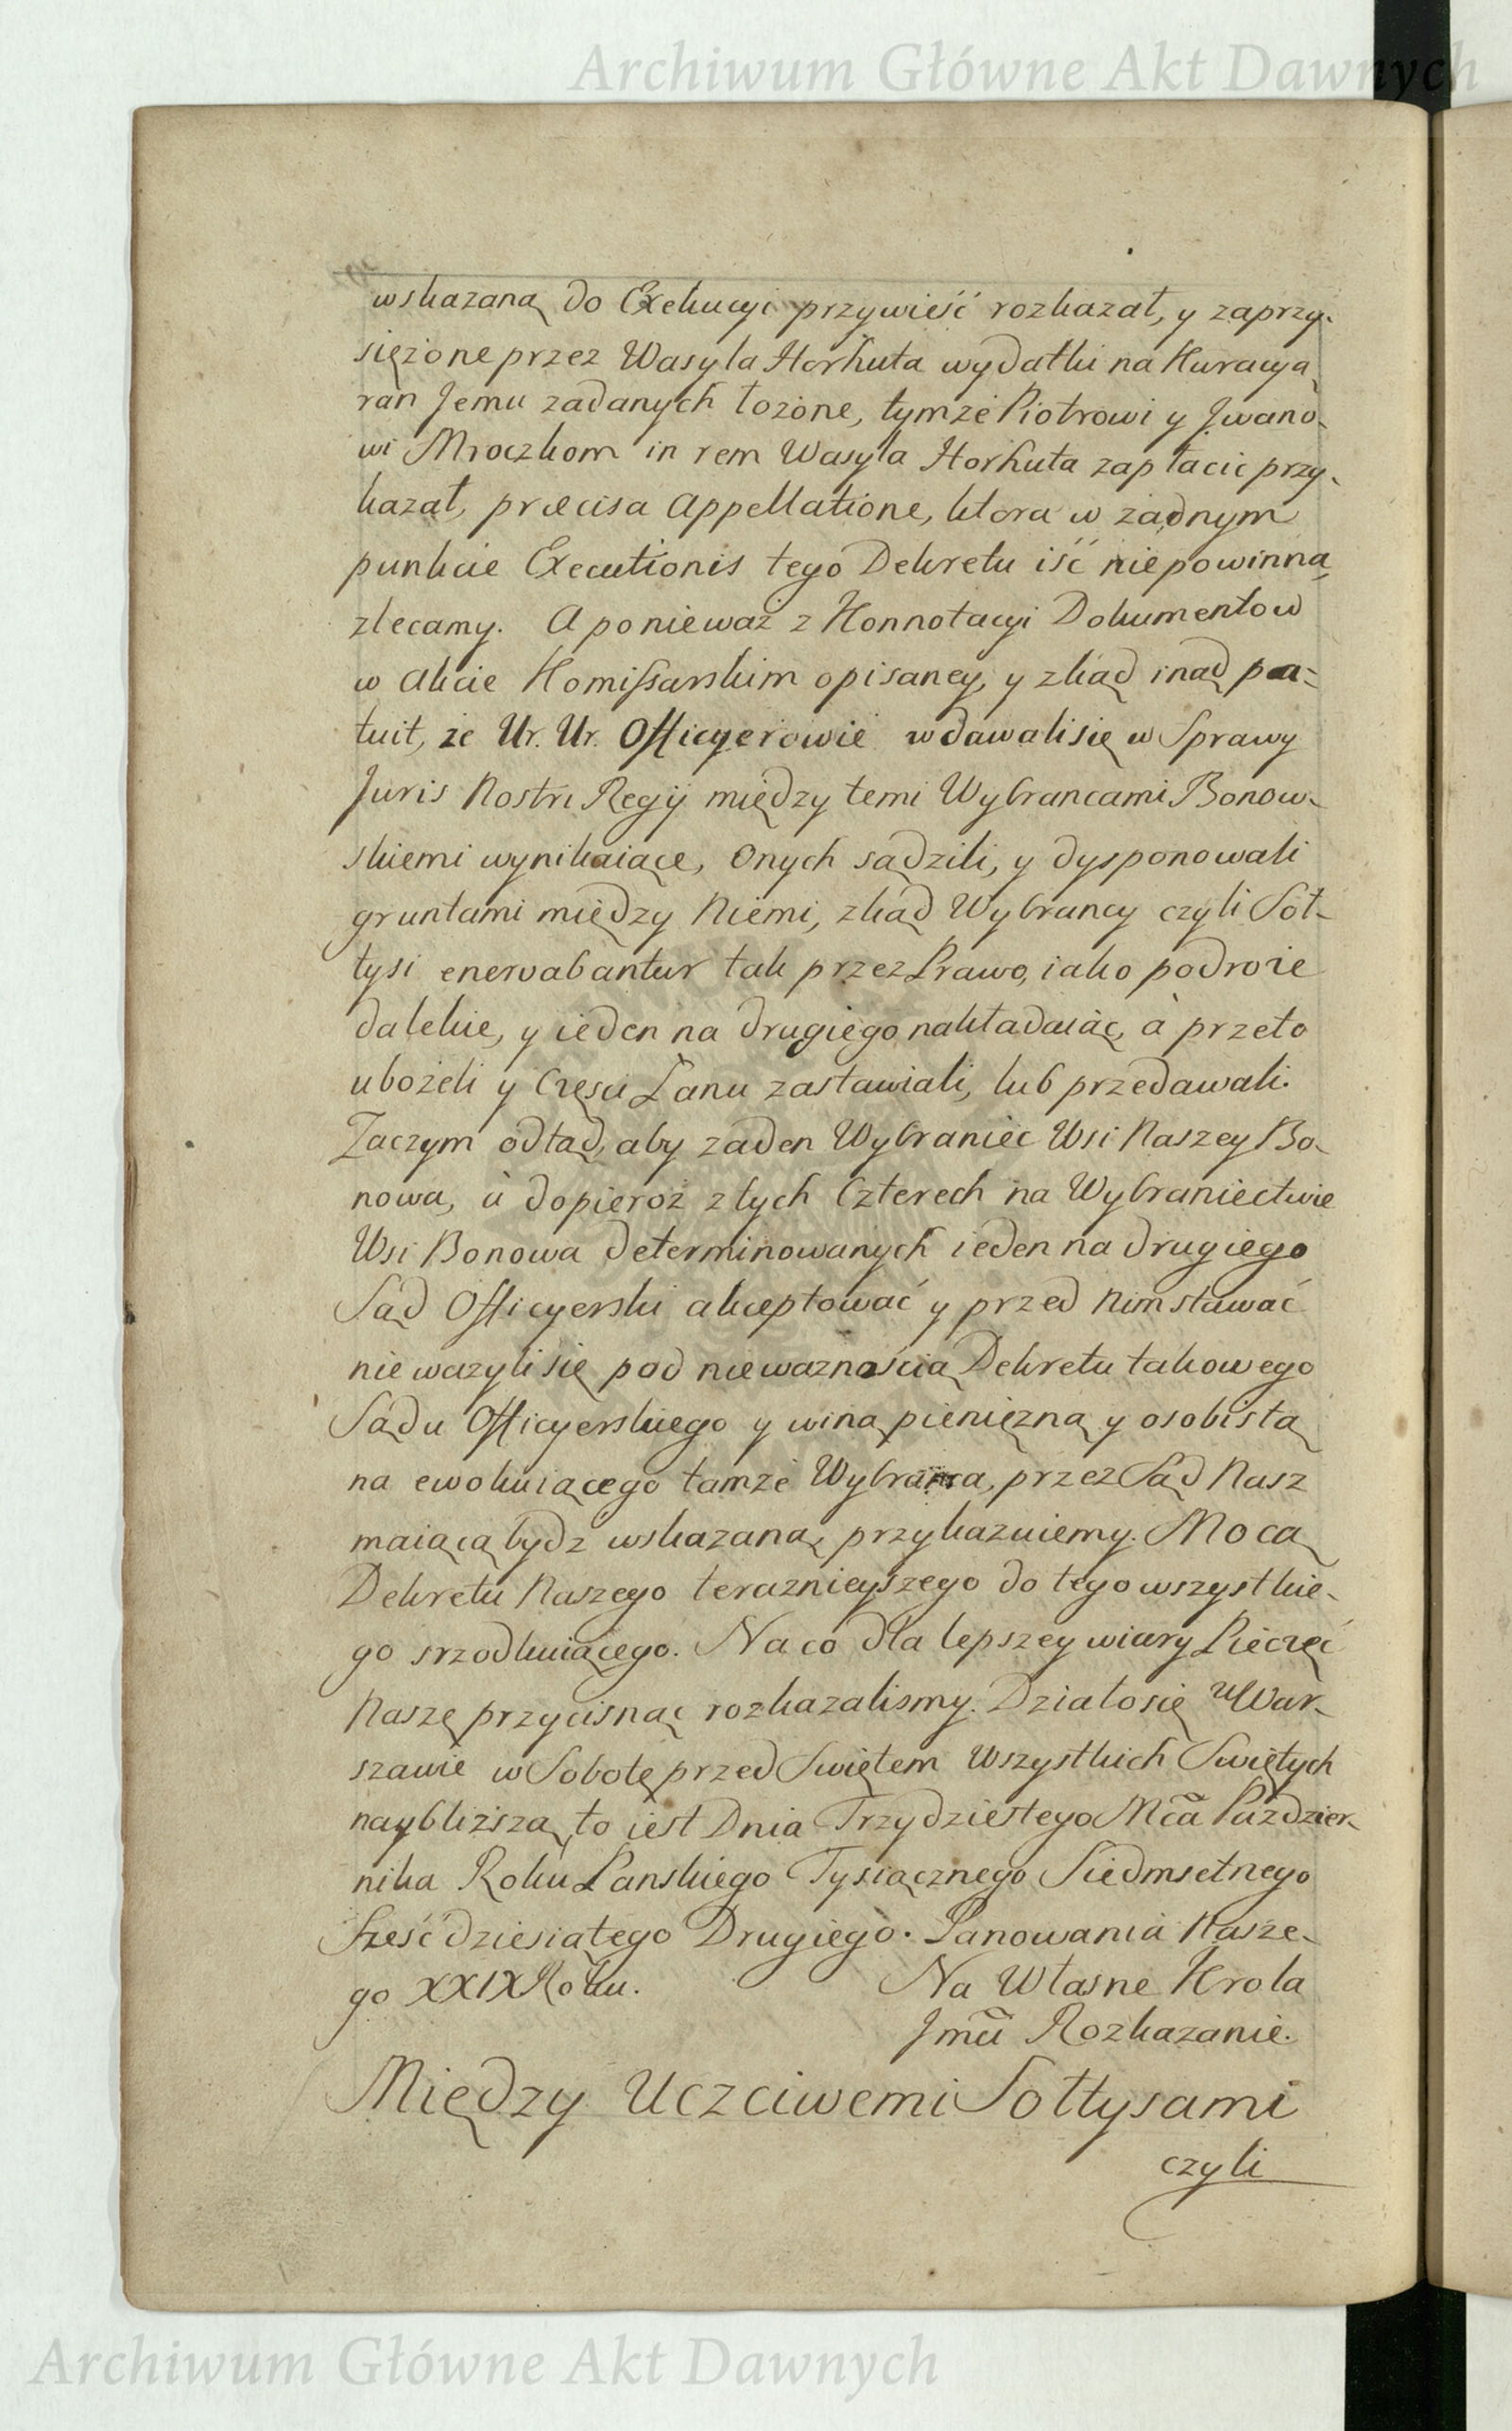 Archiwum Główne Akt Dawnych
wskazaną do Exekucyi przywieść rozkazał, y zaprzy-
siężone przez Wasyla Horhuta wydatki na Kuracyą
ran Jemu zadanych łożone, tymże Piotrowi y Jwano-
wi Mroczkom in rem Wasyla Horhuta zapłacic przy-
kazał, præcisa Appellatione, ktora w żadnym
punkcie Executionis tego Dekretu iść niepowinna,
zlecamy. A ponieważ z Konnotacyi Dokumentow
w Akcie Komissarskim opisaney, y zkąd inąd pa=
tuit, że Ur. Ur. Officyerowie wdawali się w Sprawy
Juris Nostri Regij między temi Wybrancami Bonow-
skiemi wynikaiące, Onych sądzili, y dysponowali
gruntami między Niemi, zkąd Wybrancy czyli Soł-
tysi enervabantur tak przez Prawo, iako podroże
dalekie, y ieden na drugiego nakładaiąc, à przeto
ubożeli y Częsci Łanu zastawiali, lub przedawali.
Zaczym odtąd, aby żaden Wybraniec Wsi Naszey Bo-
nowa, à dopieroż z tych Czterech na Wybraniectwie
Wsi Bonowa determinowanych ieden na drugiego
Sąd Officyerski akceptować y przed nim stawać
nieważyli się pod nieważnoscią Dekretu takowego
Sądu Officyerskiego y winą pieniężną y osobistą
na ewokuiącego tamże Wybrańca, przez Sąd Nasz
maiącą bydz wskazaną, przykazuiemy. Mocą
Dekretu Naszego teraznieyszego do tego wszystkie-
go srzodkuiącego. Na co dla lepszey wiary Pieczęć
Naszę przycisnąc rozkazalismy. Działo się w War-
szawie w Sobotę przed Swiętem Wszystkich Swiętych
naybliższą, to iest Dnia Trzydziestego Mca Pazdzier-
nika Roku Panskiego Tysiącznego Siedmsetnego
Sześćdziesiątego Drugiego. Panowania Nasze-
go XXIX Roku. Na Własne Krola
Jmci Rozkazanie.
Między Uczciwemi Sołtysami
czyli
Archiwum Główne Akt Dawnych